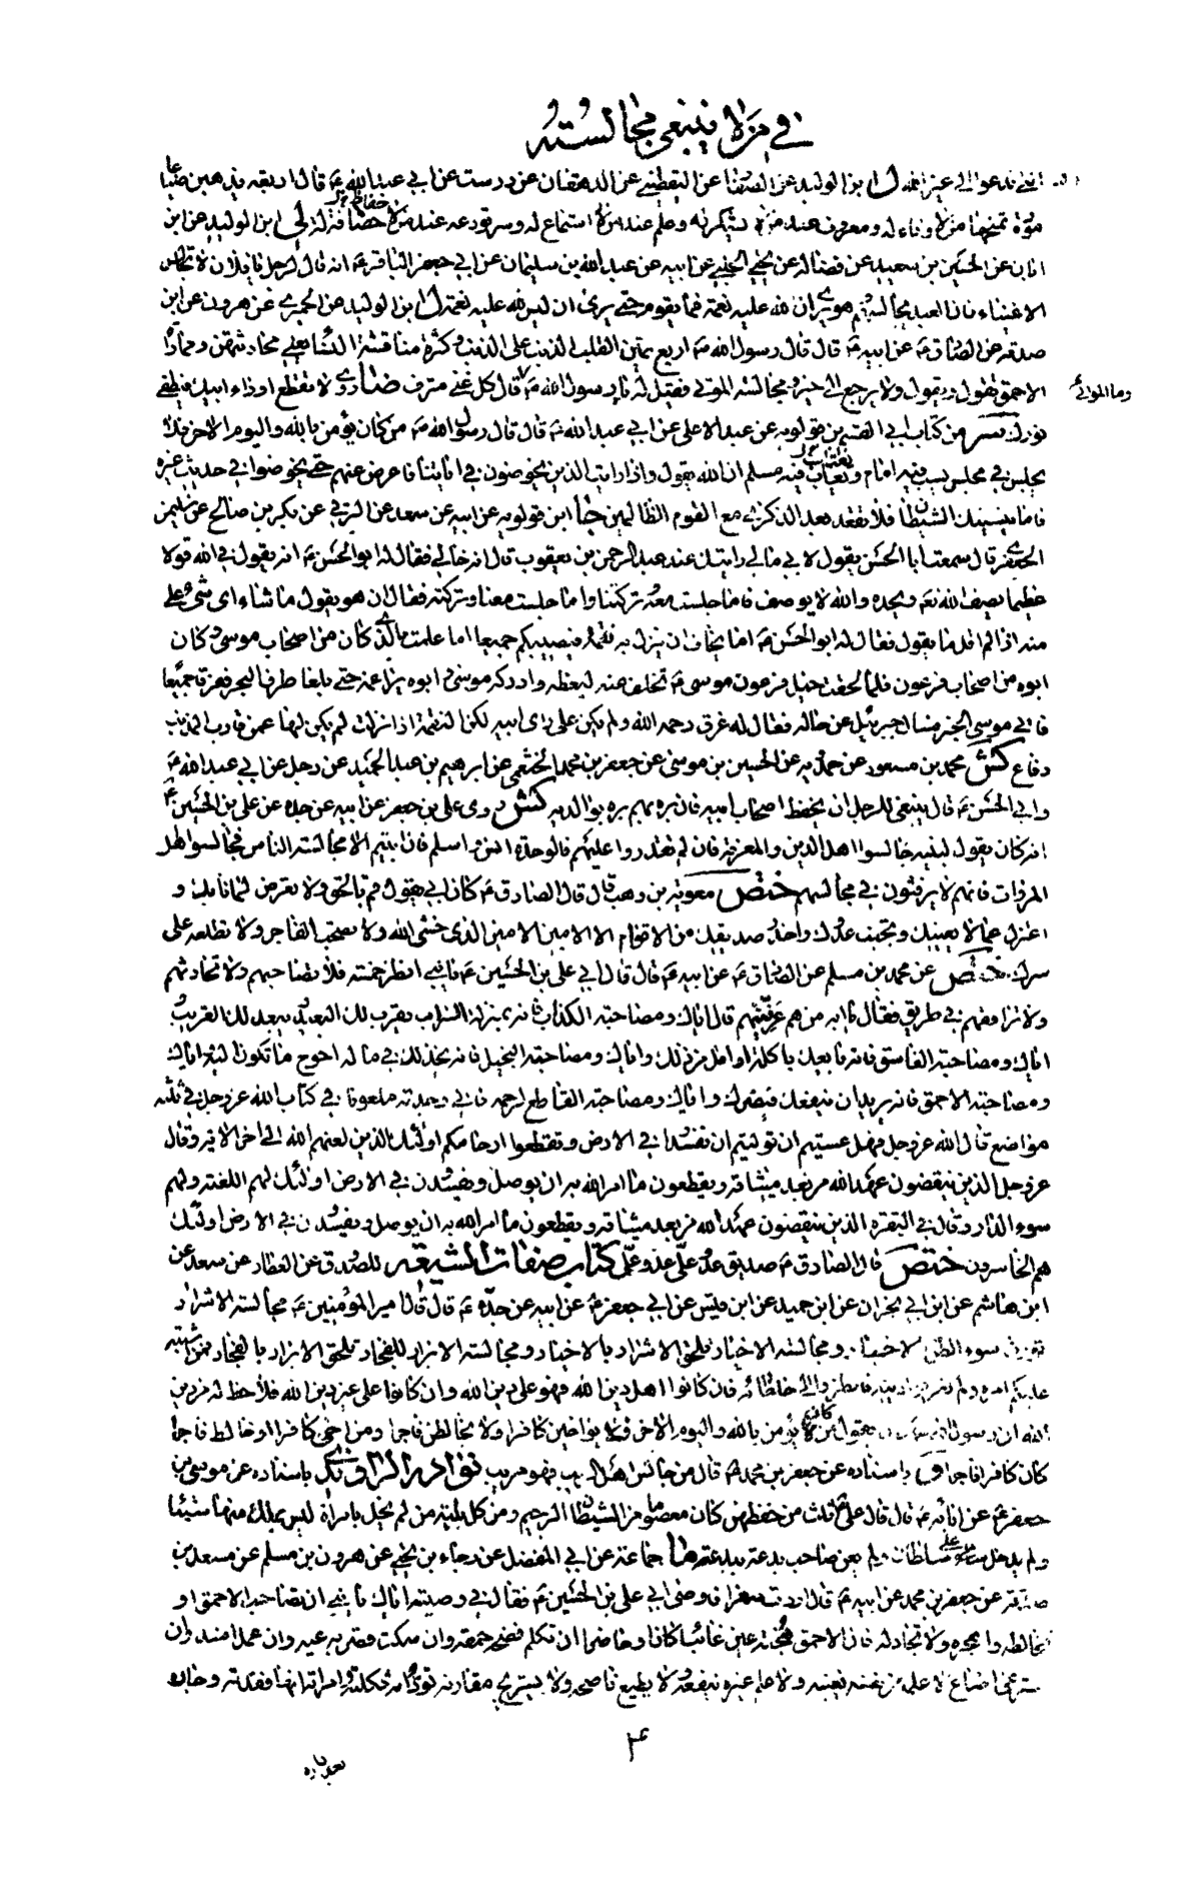 في من لا ينبغي مجالسته
ابن الوليد عن الصفار عن اليقطيني عن الدهقان عن درست عن ابي عبد الله ع قال اربعة يذهبن ضياعا
مودة تمنحها من لا وفاء له ومعروف عند من لا يشكر له وعلم عند من لا استماع له وسر تودعه عند من لا حصافة له ابن الوليد عن ابن
ابان عن الحسين بن سعيد عن فضالة عن يحيى الحلبي عن ابيه عن عبد الله بن سليمان عن ابي جعفر الباقر ع انه قال لرجل يا فلان لا تجالس
الاغنياء فان العبد يجالسهم وهو يرى ان لله عليه نعمة فما يقوم حتى يرى ان ليس لله عليه نعمة ابن الوليد عن الحميري عن هرون عن ابن
صدقة عن الصادق ع عن ابيه ع قال قال رسول الله ص اربع يمتن القلب الذنب على الذنب وكثرة مناقشة النساء يعني محادثتهن ومماراة
الاحمق تقول ويقول ولا يرجع الى خير ومجالسة الموتى فقيل له يا رسول الله ص قال كل غني مترف لا تقطع اوداء ابيك فيطفى
وما الموتى
نورك من كتاب ابي القسم بن قولويه عن عبد الاعلى عن ابي عبد الله ع قال قال رسول الله ص من كان يؤمن بالله واليوم الاخر فلا
يجلس في مجلس يسب فيه امام ويغتاب فيه مسلم ان الله يقول واذا رايت الذين يخوضون في اياتنا فاعرض عنهم حتى يخوضوا في حديث غيره
فاما ينسينك الشيطان فلا تقعد بعد الذكرى مع القوم الظالمين جا ابن قولويه عن ابيه عن سعد عن البرقي عن بكر بن صالح عن سليمن
الجعفري قال سمعت ابا الحسن يقول لابي ما لي رايتك عند عبد الرحمن بن يعقوب قال انه خالي فقال له ابو الحسن ع انه يقول في الله قولا
عظيما يصف الله تع ويحده والله لا يوصف فاما جلست معه وتركتنا واما جلست معنا وتركته فقال ان هو يقول ما شاء اي شيء علي
منه اذا لم اقل ما يقول فقال له ابو الحسن ع اما تخاف ان ينزل به نقمة فيصيبكم جميعا اما علمت بالذي كان من اصحاب موسى وكان
ابوه من اصحاب فرعون فلما لحقت خيل فرعون موسى ع تخلف عنه ليعظه وادركه موسى وابوه يراغمه حتى بلغا طرف البحر فغرقا جميعا
فاتى موسى الخبر فسال جبرئيل عن حاله فقال له غرق رحمه الله ولم يكن على راى ابيه لكن النقمة اذا نزلت لم يكن لها عمن قارب المذنب
دفاع كش محمد بن مسعود عن حمدويه عن الحسين بن موسى عن جعفر بن محمد الخثعمي عن ابرهيم بن عبد الحميد عن رجل عن ابي عبد الله ع
وابي الحسن ع قال ينبغي للرجل ان يحفظ اصحاب ابيه فان بره بهم بره بوالديه كش روى علي بن جعفر عن ابيه عن جده عن علي بن الحسين ع
انه كان يقول لبنيه جالسوا اهل الدين والمعرفة فان لم تقدروا عليهم فالوحدة انس واسلم فان ابيتم الا مجالسة الناس فجالسوا اهل
المروات فانهم لا يرفثون في مجالسهم ختص معوية بن وهب قال قال الصادق ع كان ابي يقول قم بالحق ولا تعرض لما نابك و
اعتزل عما لا يعنيك وتجنب عدوك واحذر صديقك من الاقوام الا الامين الامين الذي خشي الله ولا تصحب الفاجر ولا تطلعه على
سرك ختص عن محمد بن مسلم عن الصادق ع عن ابيه ع قال قال ابي علي بن الحسين ع يا بني انظر خمسة فلا تصاحبهم ولا تحادثهم
ولا ترافقهم في طريق فقال يا ابه من هم عرفنيهم قال اياك ومصاحبة الكذاب فانه بمنزلة السراب يقرب لك البعيد ويبعد لك القريب
اياك ومصاحبة الفاسق فانه بايعك باكلة او اقل من ذلك واياك ومصاحبة البخيل فانه يخذلك في ماله احوج ما تكون اليه اياك
ومصاحبة الاحمق فانه يريد ان ينفعك فيضرك واياك ومصاحبة القاطع لرحمه فاني وجدته ملعونا في كتاب الله عز وجل في ثلثه
مواضع قال الله عز وجل فهل عسيتم ان توليتم ان تفسدوا في الارض وتقطعوا ارحامكم اولئك الذين لعنهم الله الى اخر الاية وقال
عز وجل الذين ينقضون عهد الله من بعد ميثاقه ويقطعون ما امر الله به ان يوصل ويفسدون في الارض اولئك لهم اللعنة ولهم
سوء الدار وقال في البقرة الذين ينقضون عهد الله من بعد ميثاقه ويقطعون ما امر الله به ان يوصل ويفسدون في الارض اولئك
هم الخاسرون ختص قال الصادق ع صديق عدو علي عدو علي كتاب صفات الشيعة للصدوق عن العطار عن سعد عن
ابن هاشم عن ابن ابي نجران عن ابن حميد عن ابن قيس عن ابي جعفر ع عن ابيه عن جده ع قال قال امير المؤمنين ع مجالسة الاشرار
سوء الظن بالاخيار ومجالسة الاخيار تلحق الاشرار بالاخيار ومجالسة الابرار للفجار تلحق الابرار بالفجار فمن اشتبه
عليكم امره ولم تعرفوا دينه فانظروا الى خلطائه فان كانوا اهل دين الله فهو على دين الله وان كانوا على غير دين الله فلا حظ له من دين
الله ان رسول الله ص كان يقول من كان يؤمن بالله واليوم الاخر فلا يواخين كافرا ولا يخالطن فاجرا ومن اخى كافرا او خالط فاجرا
كان كافرا فاجرا باسناده عن جعفر بن محمد ع قال من جالس اهل الريب فهو مريب نوادر الراوندي باسناده عن موسى بن
جعفر ع عن ابائه ع قال قال علي ع ثلث من حفظهن كان معصوما من الشيطان الرجيم ومن كل بلية من لم يخل بامراة ليس يملك منها شيئا
ولم يدخل على سلطان ولم يعن صاحب بدعة ببدعته ما جماعة عن ابي المفضل عن رجاء بن يحيى عن هرون بن مسلم عن مسعدة بن
صدقة عن جعفر بن محمد عن ابيه ع قال اردت سفرا فاوصى ابي علي بن الحسين ع فقال في وصيته اياك يا بني ان تصاحب الاحمق او
تخالطه واهجره ولا تجادله فان الاحمق هجنة عين غائبا كان او حاضرا ان تكلم فضحه حمقه وان سكت قصر به عيه وان عمل افسد وان
استرعى اضاع لا علمه من نفسه يغنيه ولا علم غيره ينفعه ولا يطيع ناصحه ولا يستريح مقارنه تود امه ثكلته وامراته انها فقدته وجاره
٤
بعد داره